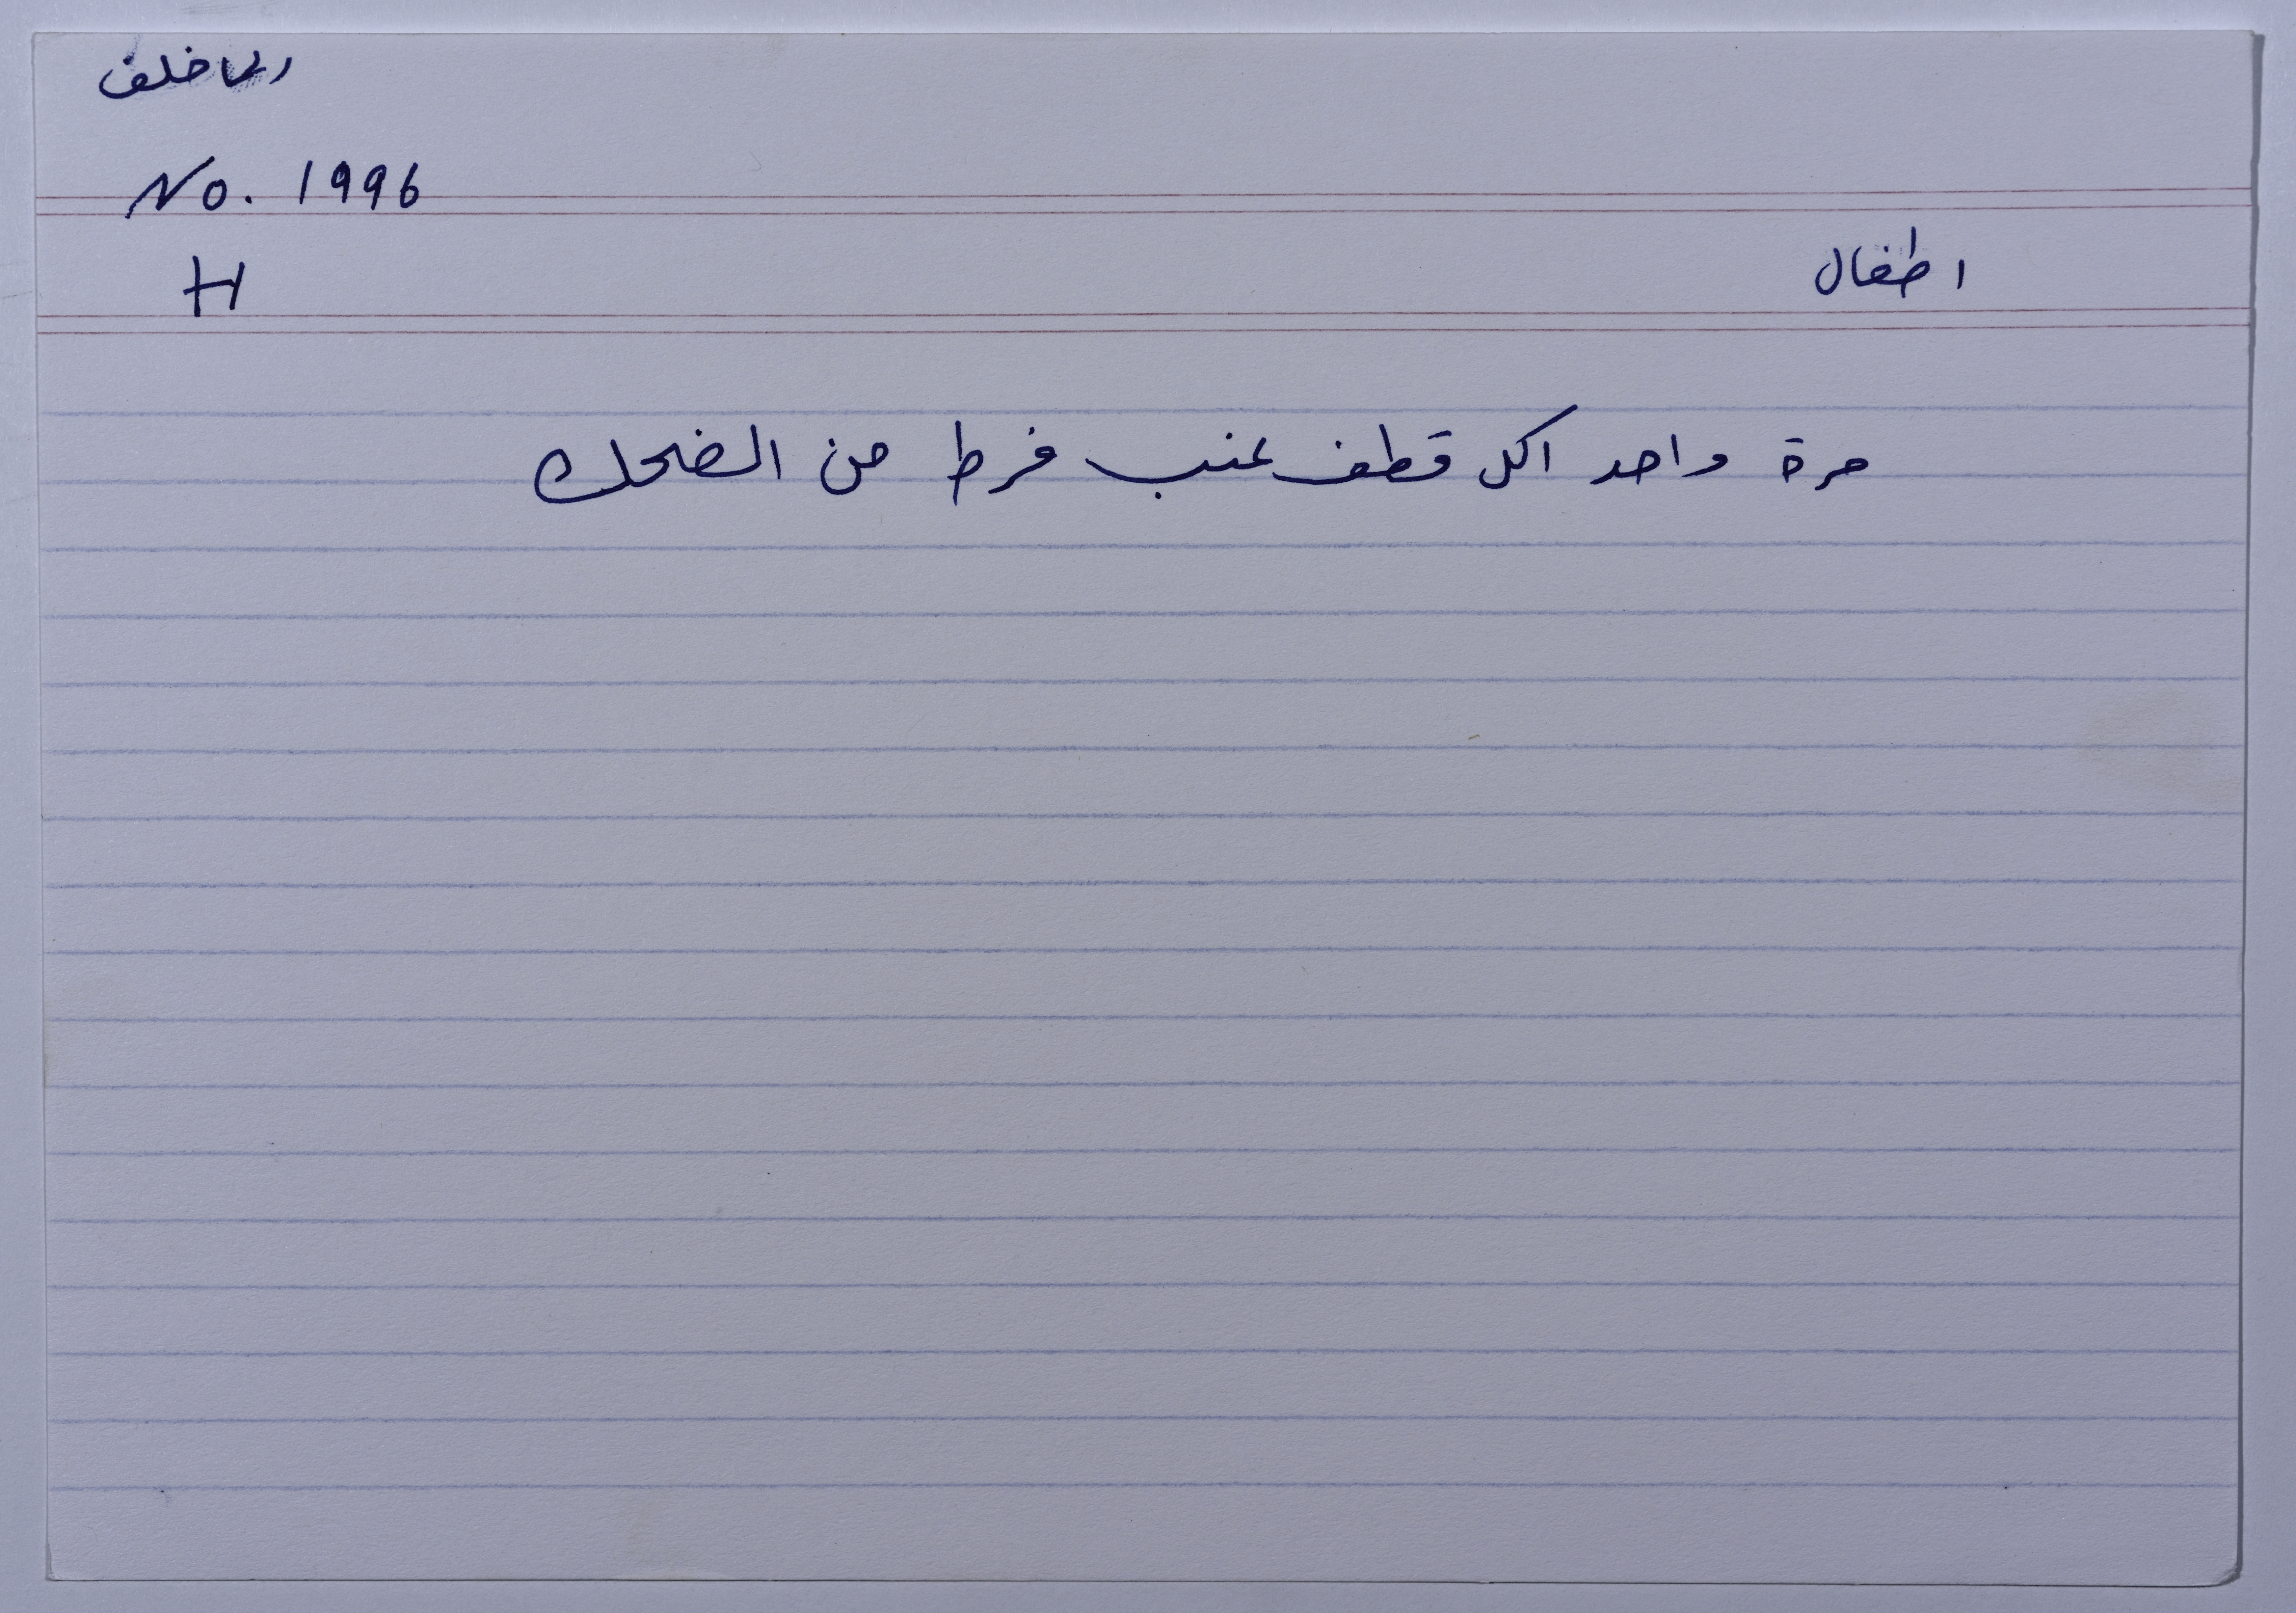 خلف
No. 1996
H
اطفال
مرة واحد اكل قطف عنب فرط من الضحك